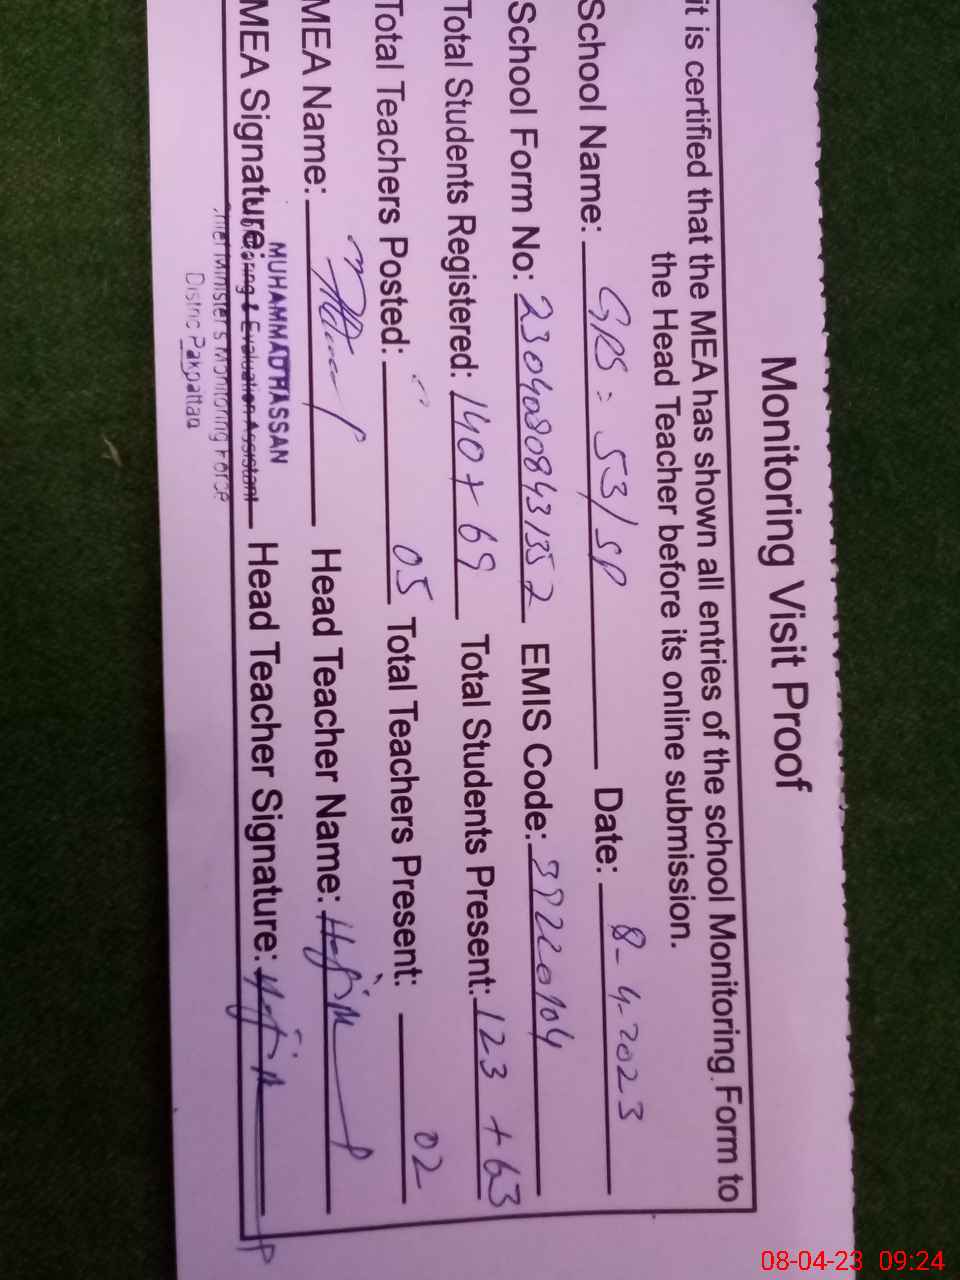 Monitoring Visit Proof
it is certified that the MEA has shown all entries of the school Monitoring Form to
the Head Teacher before its online submission.
School Name: GPS: 53/SP Date: 8-4-2023
School Form No: 2304080843135 2 EMIS Code: 39220104
Total Students Registered: 140+69 Total Students Present: 123+63
Total Teachers Posted: 05 Total Teachers Present: 02
MEA Name: Head Teacher Name:
MEA Signature: Head Teacher Signature:
MUHAMMAD HASSAN
Monitoring & Evaluation Assistant
Chief Minister's Monitoring Force
Distric Pakpattan
08-04-23 09:24